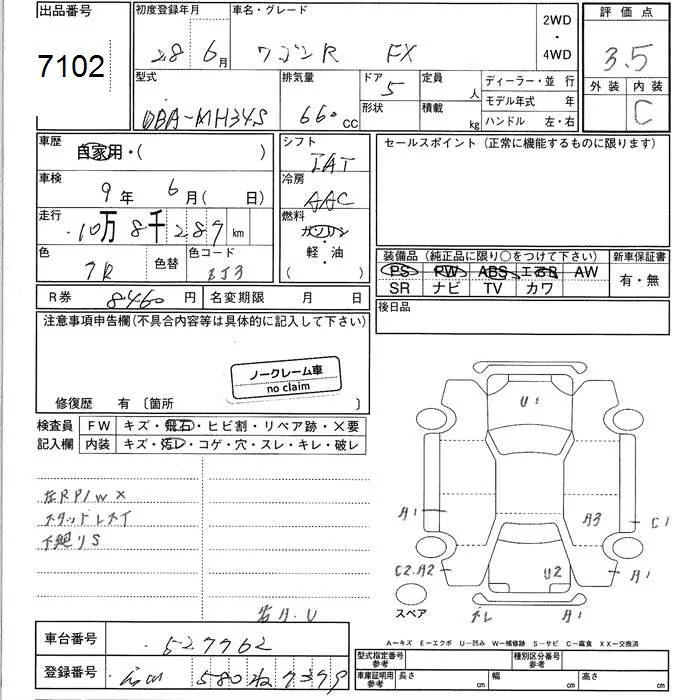 出品番号
7102
初度登録年月
28 6月
車名・グレード
ワゴンR FX
2WD
・
4WD
評価点
3.5
外装 内装
C
型式
DBA-MH34S
排気量
660 CC
ドア
5
形状
定員
人
積載
kg
ディーラー・並行
モデル年式 年
ハンドル 左・右
車歴
自家用・( )
車検
9年 6月( 日)
走行
10万8千287 km
色
色替
色コード
ZJ3
シフト
IAT
冷房
AAC
燃料
ガソリン
軽・油
( )
セールスポイント (正常に機能するものに限ります)
装備品 (純正品に限り○をつけて下さい)
PS PW ABS エアB AW
SR ナビ TV カワ
新車保証書
有・無
R券 8460円
名変期限 月 日
後日品
注意事項申告欄(不具合内容等は具体的に記入して下さい)
ノークレーム車
no claim
修復歴 有 〔箇所 〕
検査員
記入欄
FW キズ・飛石・ヒビ割・リペア跡・×要
内装 キズ・汚レ・コゲ・穴・スレ・キレ・破レ
左RP/W×
スタッドレスタイ
下廻りS
U1
A1
A3
C1
C2.A2
U2
A1
A1
スペア
A−キズ E−エクボ U−凹み W−補修跡 S−サビ C−腐食 XX−交換済
車台番号
527762
登録番号
580
型式指定番号
参考
種別区分番号
参考
車庫証明用
参考
長さ cm
幅 cm
高さ cm